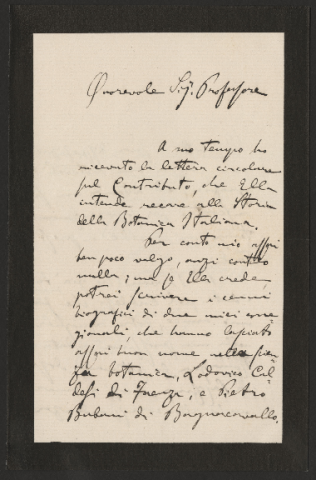 Onorevole Sig. Professore
A suo tempo ho
ricevuto la lettera circolare
sul Contributo, che Ella
intende recare alla Storia
della Botanica Italiana.
Per conto mio assai
ben poco valgo, anzi conto
nulla; ma se Ella crede,
potrei scrivere i cenni
biografici di due miei corre
gionali, che hanno lasciato
assai buon nome nella
botanica, Lodovico Cal
desi di Faenza, e Pietro
Bubani di Bagnacavallo.